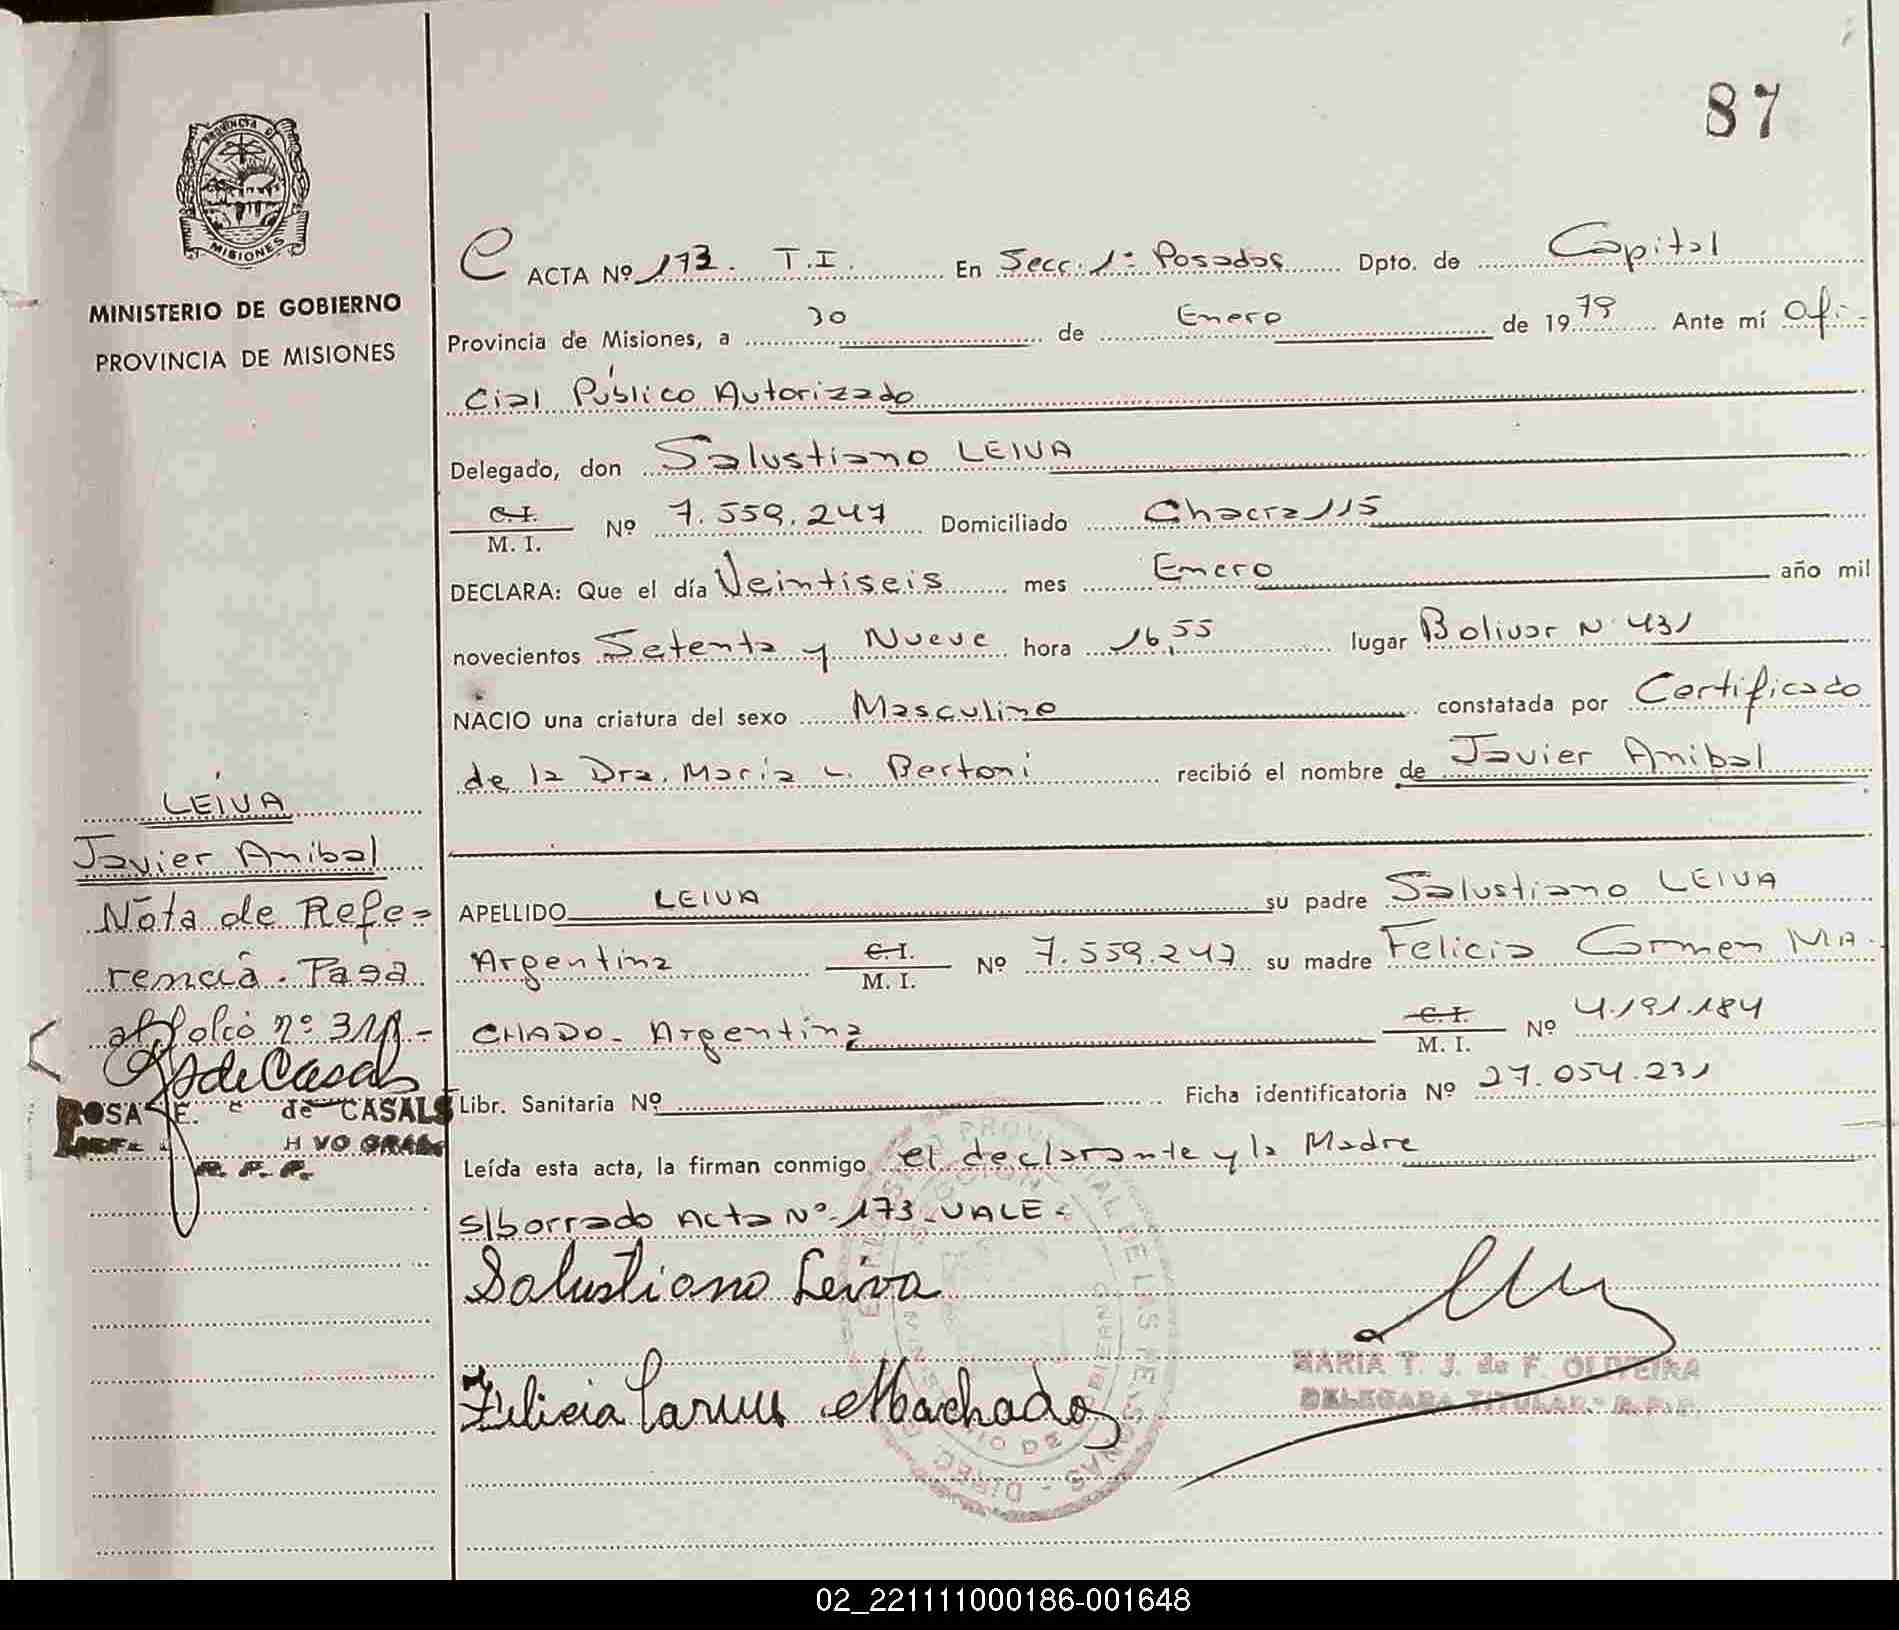 87
PROVINCIA DE
MISIONES
MINISTERIO DE GOBIERNO
PROVINCIA DE MISIONES
ACTA Nº 173. T.I. En Secc. 1ª Posadas Dpto. de Capital
Provincia de Misiones, a 30 de Enero de 1979 Ante mí Ofi-
cial Público Autorizado
Delegado, don Salustiano LEIVA
C.I. / M. I. Nº 7.559.247 Domiciliado Chacra 115
DECLARA: Que el día Veintiseis mes Enero año mil
novecientos Setenta y Nueve hora 16,55 lugar Bolivar Nº 431
NACIO una criatura del sexo Masculino constatada por Certificado
de la Dra. Maria L. Bertoni recibió el nombre de Javier Anibal
APELLIDO LEIVA su padre Salustiano LEIVA
Argentina C.I. / M. I. Nº 7.559.247 su madre Felicia Carmen MA-
CHADO - Argentina C.I. / M. I. Nº 4.191.184
Libr. Sanitaria Nº Ficha identificatoria Nº 27.054.231
Leída esta acta, la firman conmigo el declarante y la Madre
s/borrado Acta Nº 173 - VALE -
Salustiano Leiva
Felicia Carmen Machado
MARIA T. J. de F. OLIVEIRA
DELEGADA TITULAR - R.P.P.
LEIVA
Javier Anibal
Nota de Refe=
rencia. Pasa
al folio nº 311 -
ROSA E. de CASALS
R. P. P.
02_221111000186-001648